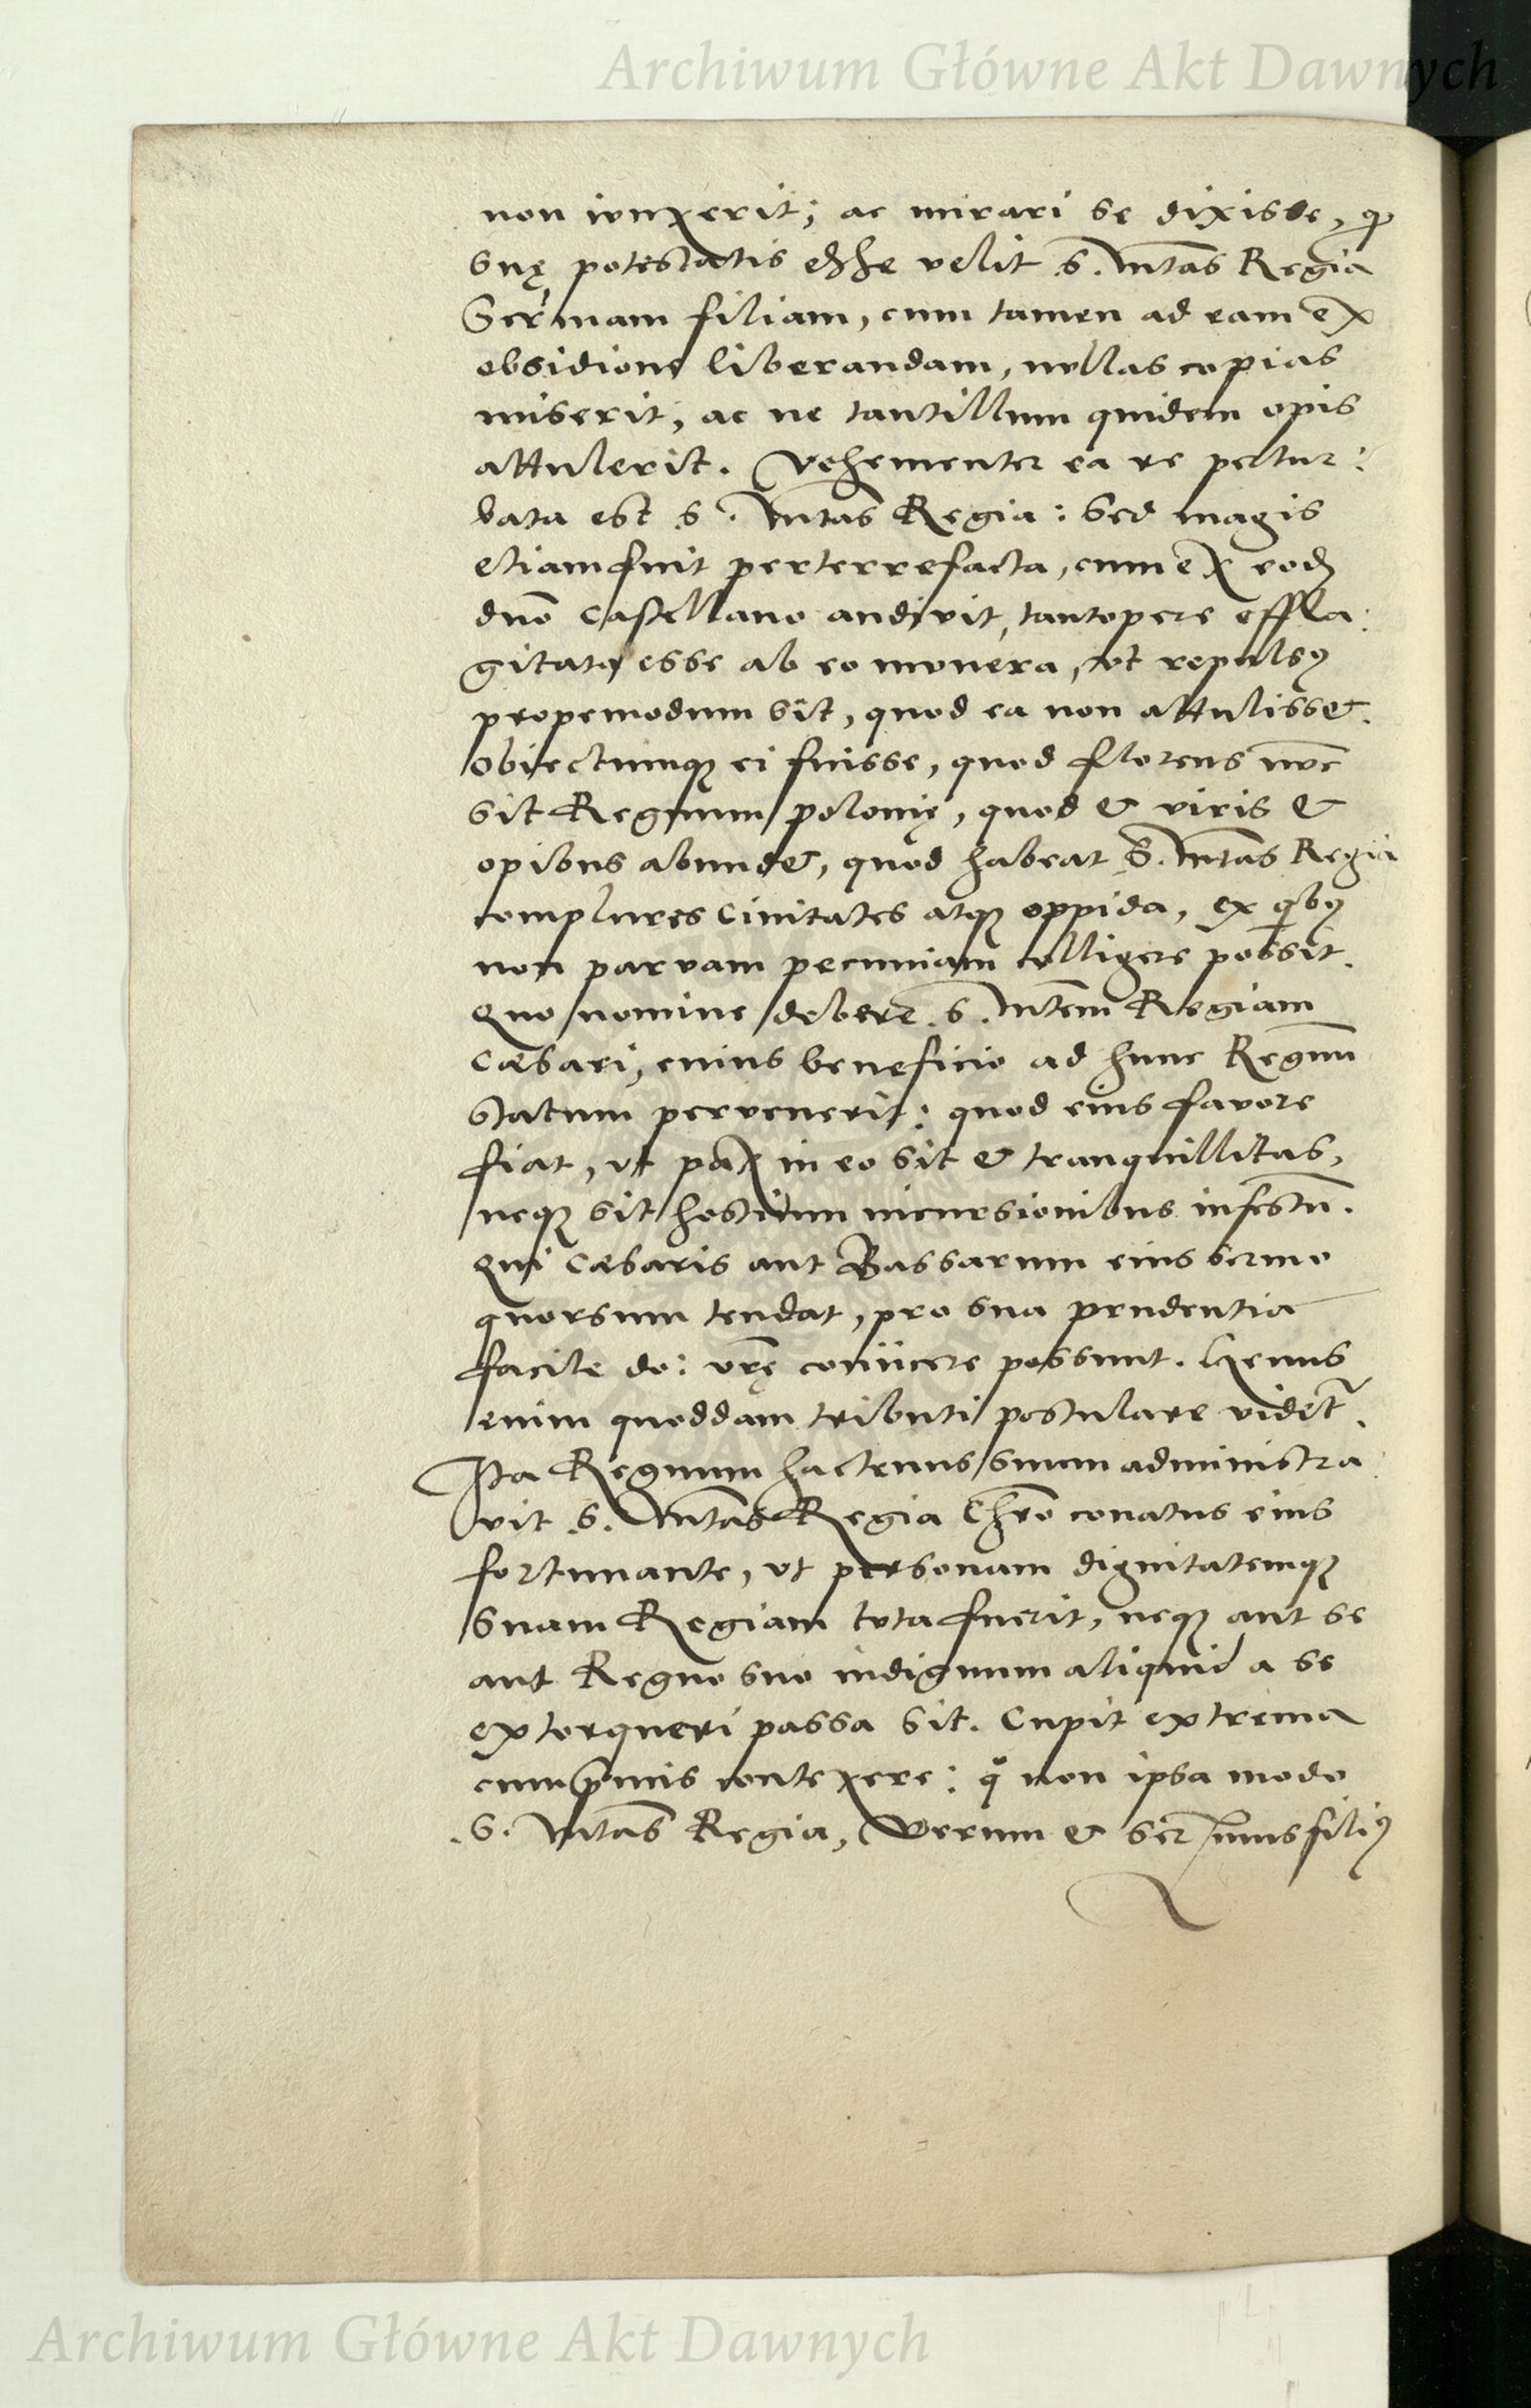 Archiwum Główne Akt Dawnych
non iunxerit; ac mirari se dixisse, qꝫ
suę potestatis esse velit S. Mtas Regia
Sermam filiam, cum tamen ad eam ex
obsidione liberandam, nullas copias
miserit, ac ne tantillum quidem opis
attulerit. Vehementer ea re pertur:
bata est S. Mtas Regia: Sed magis
etiam fuit perterrefacta, cum ex eodē
dnō Castellano audivit, tantopere effla:
gitata esse ab eo munera, ut repulsꝰ
propemodum sit, quod ea non attulisset.
Obiectumqꝫ ei fuisse, quod florens nūc
sit Regnum polonię, quod et viris et
opibus abundet, quod habeat S. Mtas Regia
complures Civitates atqꝫ oppida, ex qbꝰ
non parvam pecuniam colligere possit.
Quo nomine debere S. Mtem Regiam
Cæsari, cuius beneficio ad hunc Regnū
statum pervenerit: quod eius favore
fiat, ut pax in eo sit et tranquillitas,
neqꝫ sit hostium incursionibus infestū.
Qui Cæsaris aut Bassarum eius sermo
quorsum tendat, pro sua prudentia
facile do: vrę coniicere possunt. Genus
enim quoddam tributi postulare videt̄.
Ita Regnum hactenus suum administra
vit S. Mtas Regia Chrō conatus eius
fortunante, ut personam dignitatemqꝫ
suam Regiam tuta fuerit, neqꝫ aut se
aut Regno suo indignum aliquid a se
extorqueri passa sit. Cupit extrema
cum pmis contexere: q non ipsa modo
S. Mtas Regia, Verum et Sermus filiꝰ
Archiwum Główne Akt Dawnych